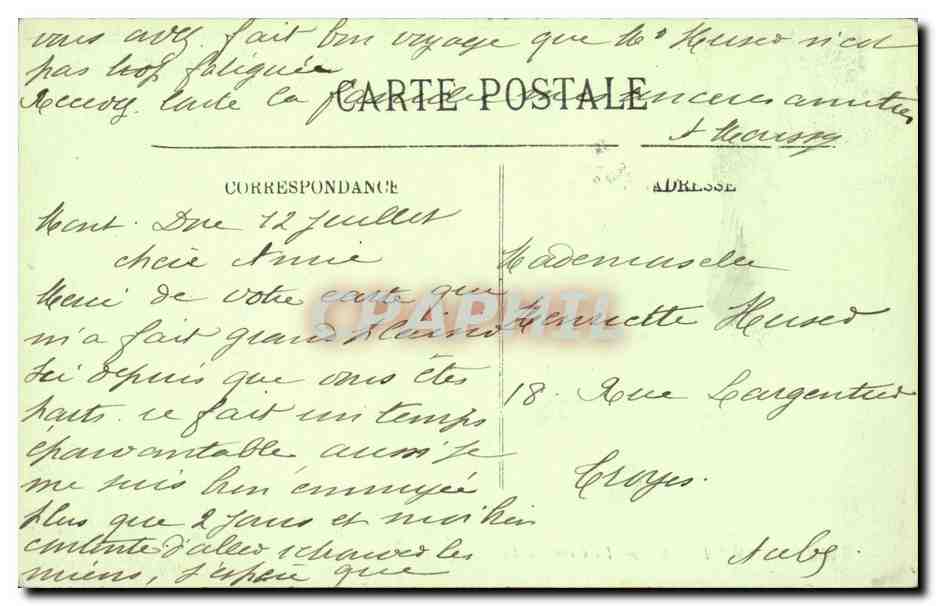 vous avez fait bon voyage que Me Huser n'est
pas trop fatiguée
Recevez toute la famille sinceres amitiés
CARTE POSTALE
CORRESPONDANCE
ADRESSE
Mont Dore 12 juillet
chere Amie
Merci de votre carte que
m'a fait grand plaisir
ici depuis que vous êtes
partis ce fait un temps
épouvantable aussi je
me suis bien ennuyée
plus que 2 jours et
contente d'aller les
miens, j'espere que
Mademoiselle
Henriette Huser
18 Rue Largentier
Troyes.
Aube
CPAPHIL